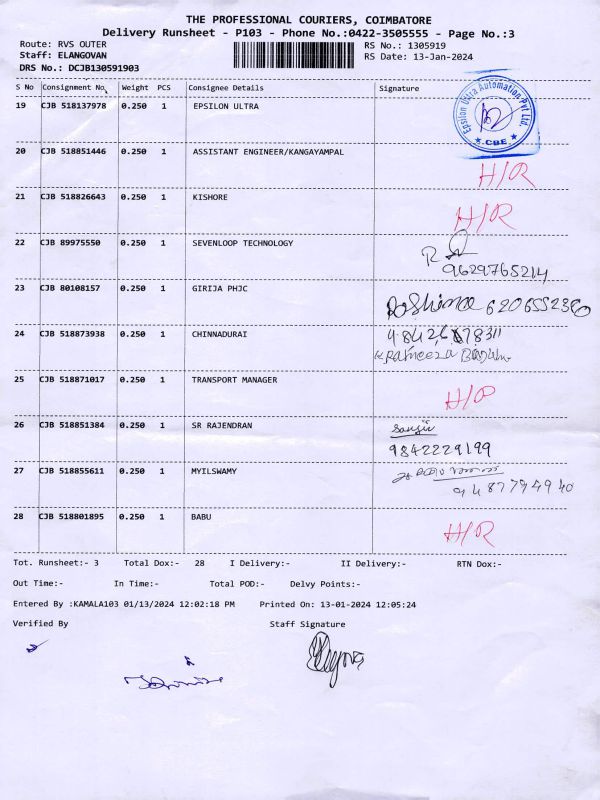 THE PROFESSIONAL COURIERS, COIMBATORE
Delivery Runsheet - P103 - Phone No.:0422-3505555 - Page No.:3
Route: RVS OUTER RS No.: 1305919
Staff: ELANGOVAN RS Date: 13-Jan-2024
DRS No.: DCJB130591903
S No Consignment No. Weight PCS Consignee Details Signature
19 CJB 518137978 0.250 1 EPSILON ULTRA
Epsilon Ultra Automation Pvt Ltd. ★ CBE ★
20 CJB 518851446 0.250 1 ASSISTANT ENGINEER/KANGAYAMPAL
H/R
21 CJB 518826643 0.250 1 KISHORE
H/R
22 CJB 89975550 0.250 1 SEVENLOOP TECHNOLOGY
9629765214
23 CJB 80108157 0.250 1 GIRIJA PHJC
24 CJB 518873938 0.250 1 CHINNADURAI
25 CJB 518871017 0.250 1 TRANSPORT MANAGER
H/R
26 CJB 518851384 0.250 1 SR RAJENDRAN
9842229199
27 CJB 518855611 0.250 1 MYILSWAMY
9487794940
28 CJB 518801895 0.250 1 BABU
H/R
Tot. Runsheet:- 3 Total Dox:- 28 I Delivery:- II Delivery:- RTN Dox:-
Out Time:- In Time:- Total POD:- Delvy Points:-
Entered By :KAMALA103 01/13/2024 12:02:18 PM Printed On: 13-01-2024 12:05:24
Verified By Staff Signature